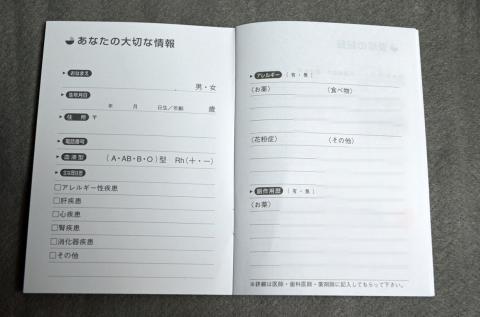 あなたの大切な情報
おなまえ
男・女
生年月日
年 月 日生/年齢 歳
住 所 〒
電話番号
血液型 (A・AB・B・O)型 Rh(+・−)
主な既往歴
□アレルギー性疾患
□肝疾患
□心疾患
□腎疾患
□消化器疾患
□その他
アレルギー (有・無)
(お薬) (食べ物)
(花粉症) (その他)
副作用歴 (有・無)
(お薬)
※詳細は医師・歯科医師・薬剤師に記入してもらって下さい。